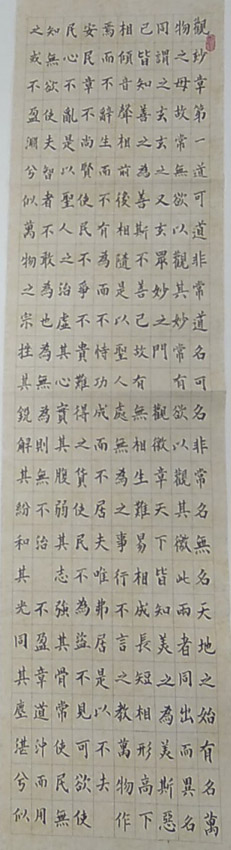 觀妙章第一道可道非常道名可名非常名無名天地之始有名萬
物之母故常無欲以觀其妙常有欲以觀其徼此兩者同出而異名
同謂之玄玄之又玄眾妙之門 觀徼章天下皆知美之為美斯惡
已皆知善之為善斯不善已故有無相生難易相成長短相形高下
相傾音聲相前後相隨是以聖人處無為之事行不言之教萬物作
焉而不辭生而不有為而不恃功成而不居夫唯弗居是以不去
安民章不尚賢使民不爭不貴難得之貨使民不為盜不見可欲使
民心不亂是以聖人之治虛其心實其腹弱其志強其骨常使民無
知無欲使夫智者不敢也為無為則無不治 不盈章道沖而用
之或不盈淵兮似萬物之宗挫其銳解其紛和其光同其塵湛兮似